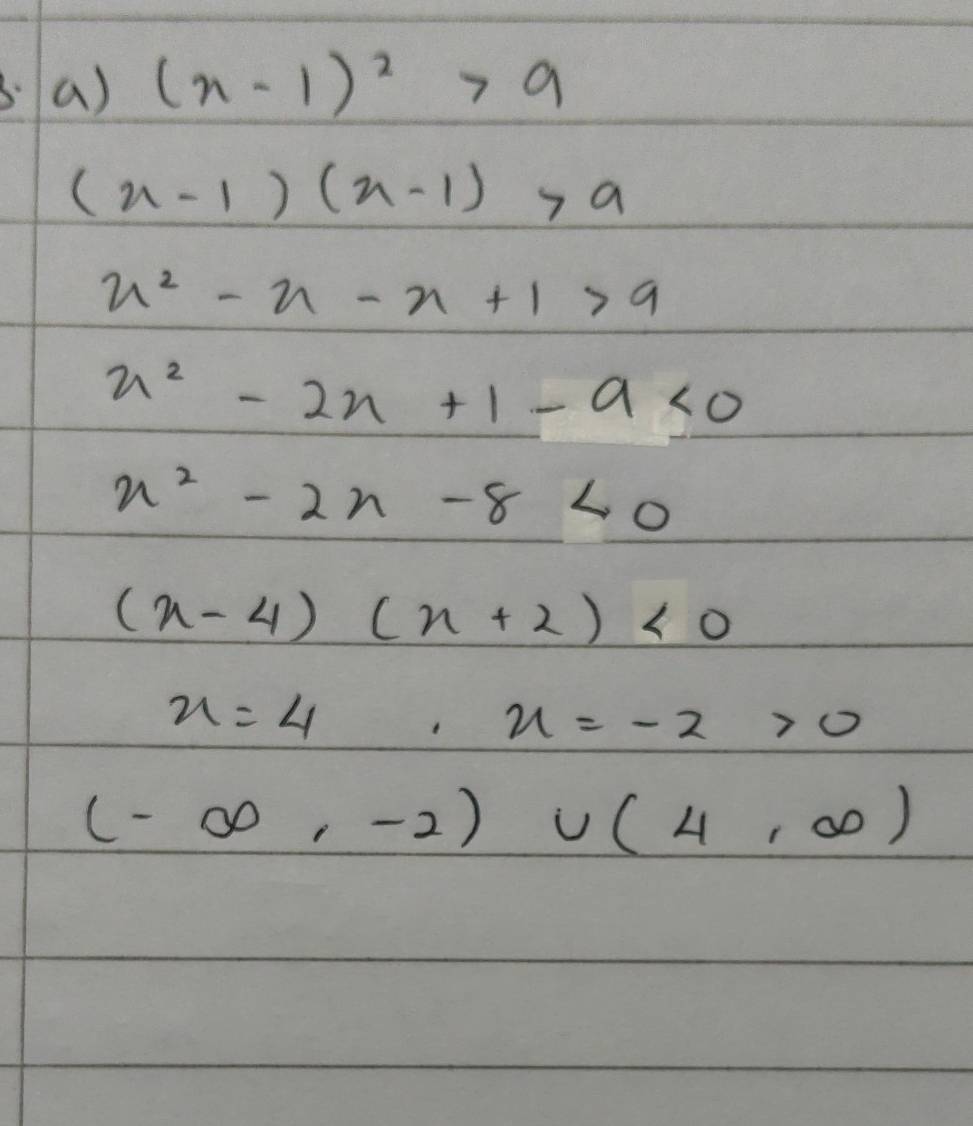 3. a) (x - 1)² > 9
(x - 1) (x - 1) > 9
x² - x - x + 1 > 9
x² - 2x + 1 - 9 < 0
x² - 2x - 8 < 0
(x - 4) (x + 2) < 0
x = 4 , x = -2 > 0
(- ∞ , -2) ∪ (4 , ∞)